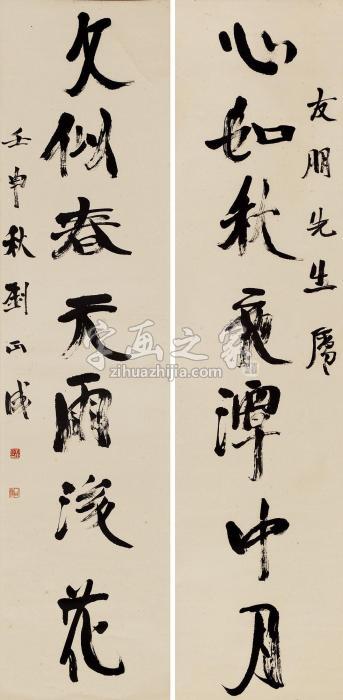 友朋先生属
心如秋夜潭中月
文似春天雨後花
壬申秋劉正成
字画之家
zihuazhijia.com